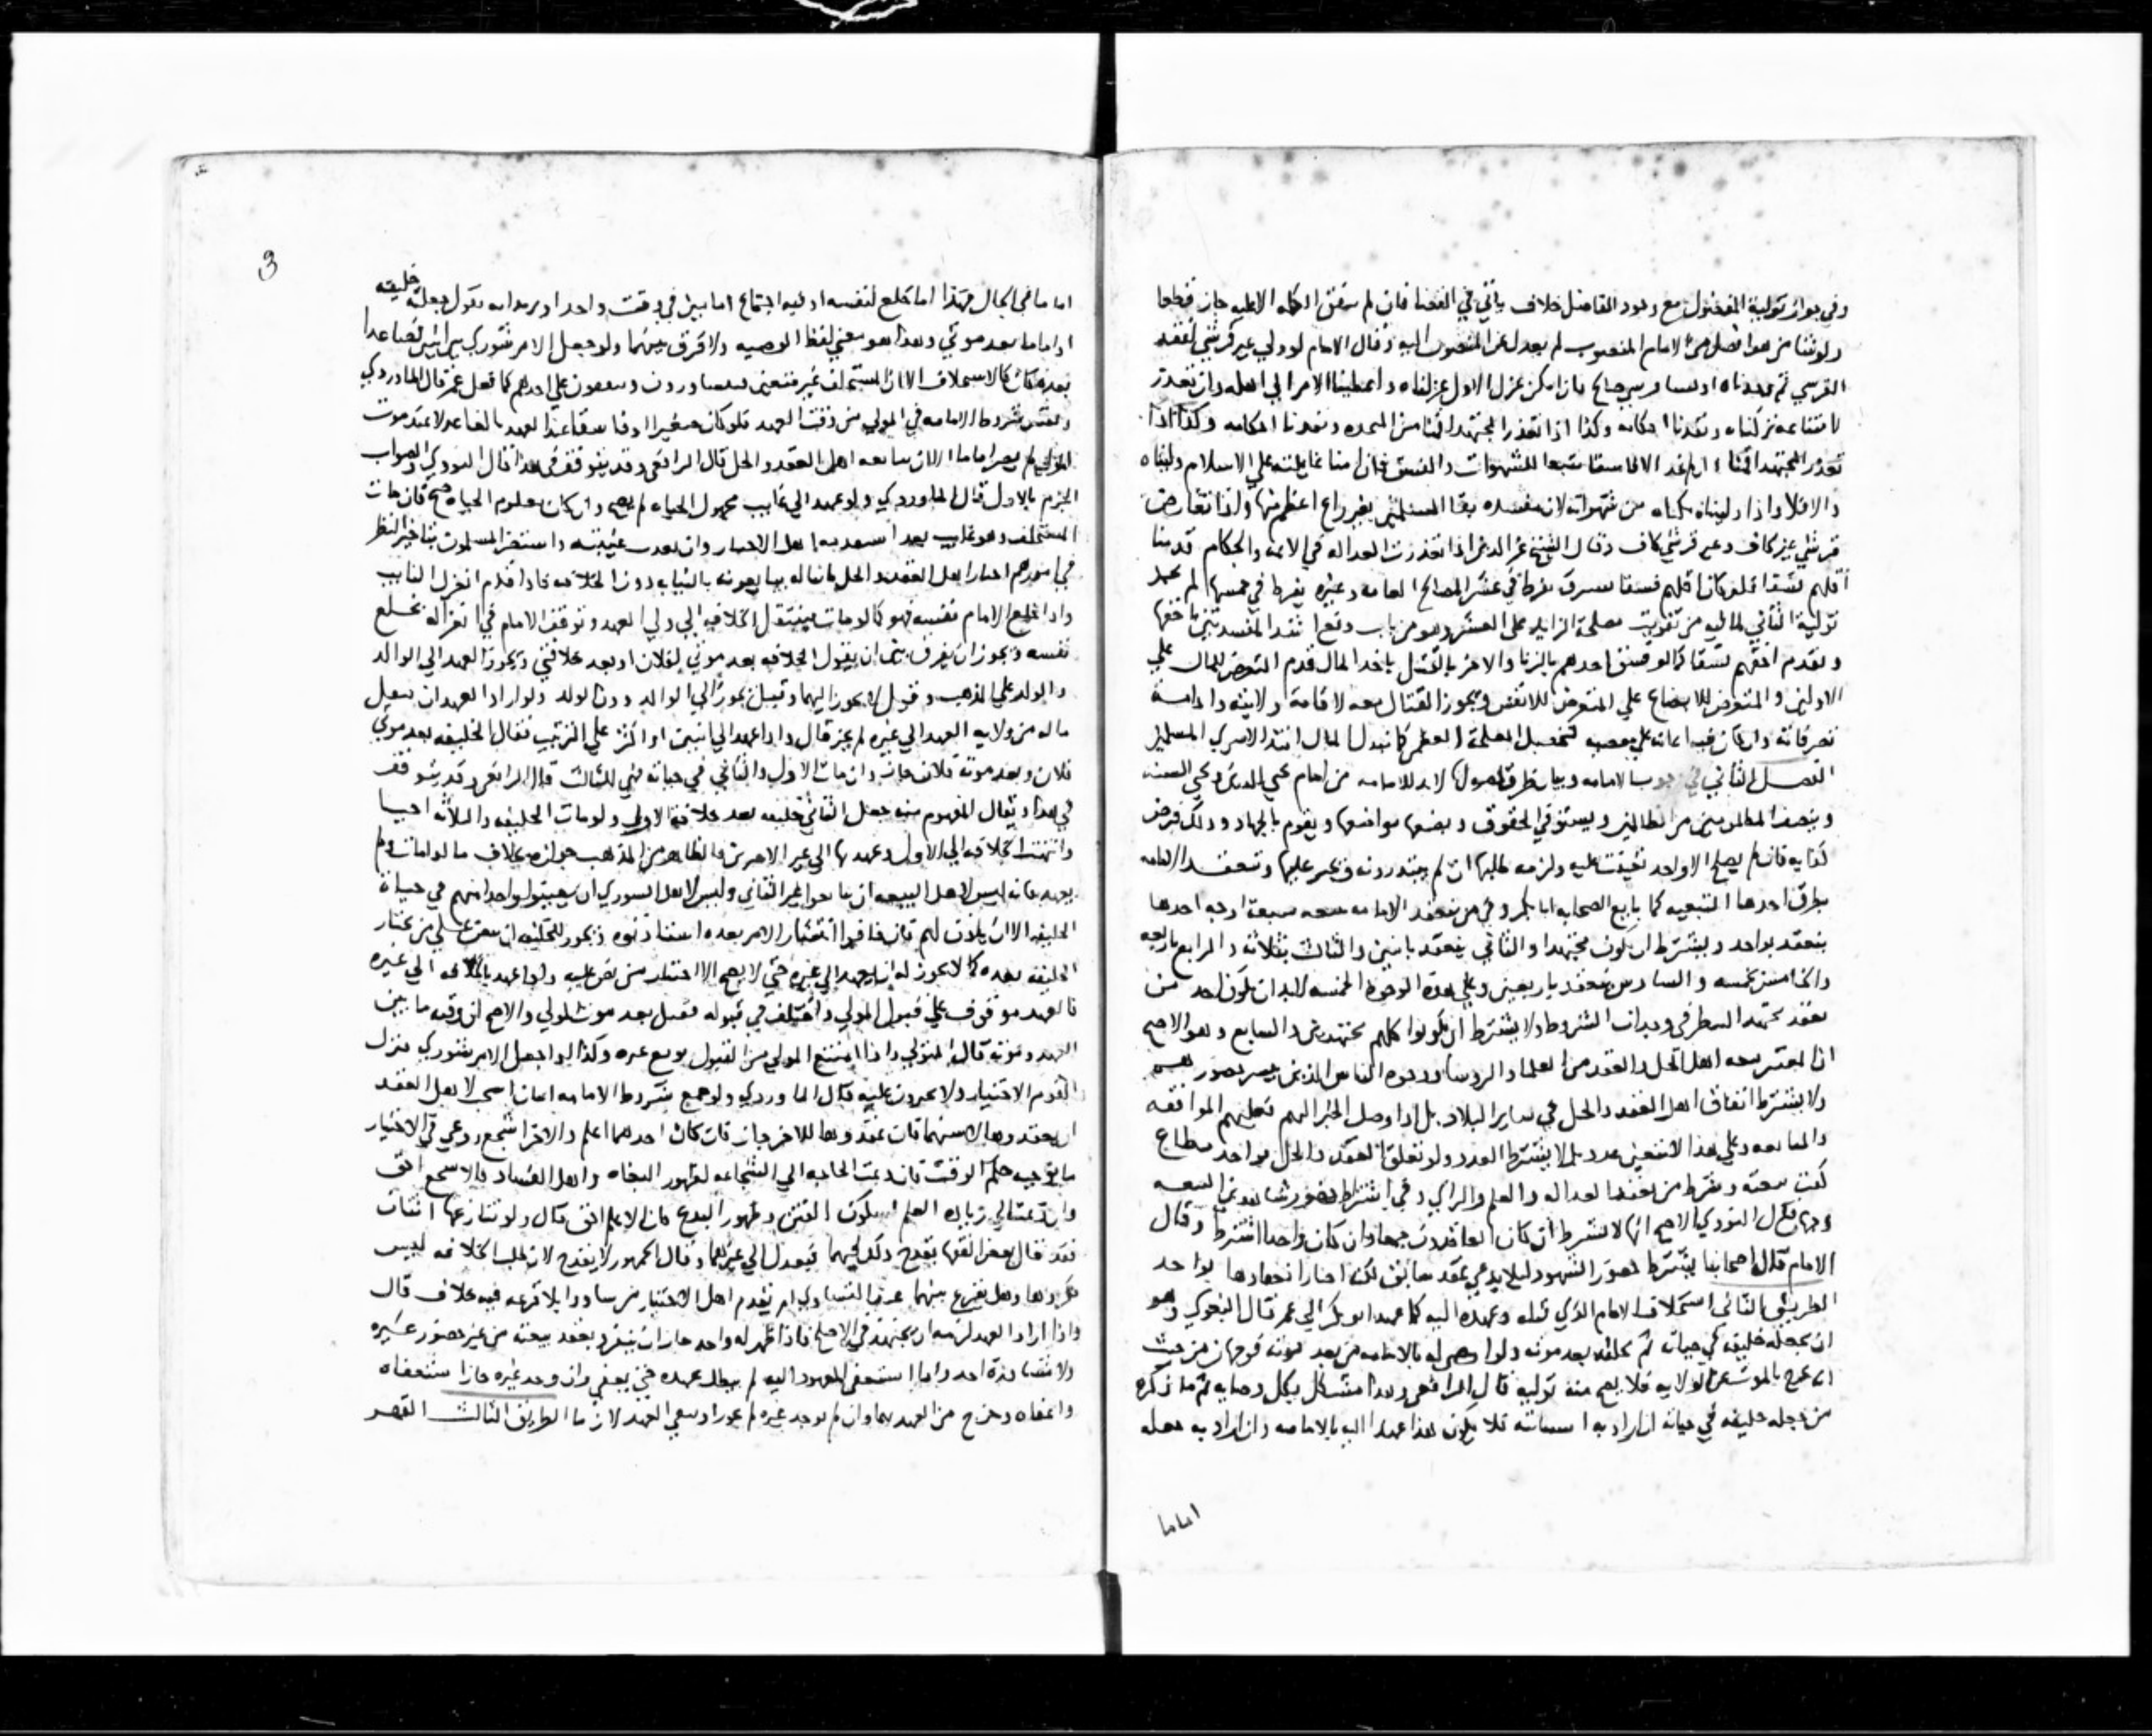 وفي جواز تولية المفضول مع وجود الفاضل خلاف يأتي في القضا فان لم تتفق الكلمه الا عليه جاز قطعا
ولو نشا من هو افضل من الامام المنصوب لم يعدل عن المنصوب اليه وقال الامام لو ولي غير قرشي لفقد
القرشي ثم وجدناه او نشا قرشي صالح فان امكن عزل الاول عزلناه واعطينا الامر الي اهله وان تعذر
لامتناعه تركناه ونفذنا احكامه وكذا اذا تعذر المجتهد
تعذر المجتهد الا فاسقا متبعا للشهوات والفسق فان امنا غايلته علي الاسلام وليناه
والا فلا واذا وليناه من شهواته لان مفسده بقا المسلمين بغير راع اعظم منها واذا تعارض
قرشي غير كاف وغير قرشي كاف وقال الشيخ عز الدين اذا تعذرت العداله في الايمه والحكام قدمنا
اقلهم فسقا فلو كان اقلهم فسقا يفرط في عشر المصالح العامه وغيره يفرط في خمسها لم تجز
تولية الثاني لما فيه من تفويت مصلحة الزايد علي العشر وهو من باب دفع اشد المفسدتين باخفها
ويقدم اخفهم فسقا كما لو فسق احدهم بالزنا والاخر بالقتل باخذ المال قدم المتعرض للمال علي
الاولين والمتعرض للابضاع علي المتعرض للانفس ويجوز القتال معه لاقامة ولايته وادامة
تصرفاته وان كان فيه اعانه علي معصيه لتحصيل المصلحة العظمي كما نبذل المال افتدا لاسري المسلمين
الفصل الثاني في وجوب الامامه وبيان طرق حصولها لابد للامامه من امام يحيي الدين ويحيي السنه
وينصف المظلومين من الظالمين ويستوفي الحقوق ويضعها مواضعها ويقوم بالجهاد وذلك فرض
كفايه فان لم يصلح الا واحد تعينت عليه ولزمه طلبها ان لم يبتدروه ويجبر عليها وتنعقد الامامه
بطرق احدها البيعه كما بايع الصحابه ابا بكر وفي من تنعقد الامامه ببيعته سبعة اوجه احدها
ينعقد بواحد ويشترط ان يكون مجتهدا والثاني ينعقد باثنين والثالث بثلاثه والرابع باربعه
والخامس بخمسه والسادس ينعقد باربعين وعلي هذه الوجوه الخمسه لابد ان يكون احد من
يعقد مجتهدا لينظر في وجدان الشروط ولا يشترط ان يكونوا كلهم مجتهدين والسابع وهو الاصح
ان المعتبر بيعه اهل الحل والعقد من العلما والروسا ووجوه الناس الذين يتيسر حضورهم
ولا يشترط اتفاق اهل العقد والحل في ساير البلاد بل اذا وصل الخبر اليهم فعليهم الموافقه
والمتابعه وعلي هذا لا يتعين عدد بل لا يشترط العدد ولو تعلق العقد والحل بواحد مطاع
كفت بيعته ويشترط من يعقد العداله والعلم والراي وفي اشتراط حضور شاهدين البيعه
وجهان قال النووي الاصح انه لا يشترط ان كان العاقدون جمعا وان كان واحدا اشترط وقال
الامام قال اصحابنا يشترط حضور الشهود ليلا يدعي عقد سابق لكن اختار انعقادها بواحد
الطريق الثاني استخلاف الامام الذي قبله وعهده اليه كما عهد ابو بكر الي عمر قال البغوي وهو
ان يجعله خليفه في حياته ثم يخلفه بعد موته ولو اوصي له بالامامه من بعد موته فوجهان من حيث
انه خرج بالموت عن الولايه فلا يصح منه توليه قال الرافعي وهذا مشكل بكل وصايه ثم ما ذكره
من جعله خليفه في حياته ان اراد به استنابته فلا يكون هذا عهدا اليه بالامامه وان اراد به جعله
اماما
3
اماما في الحال فهذا اما خلع لنفسه او فيه اجتماع امامين في وقت واحد او يريد انه يقول جعلته خليفه
او اماما بعد موتي وهذا هو معني لفظ الوصيه ولا فرق بينهما ولو جعل الامر شوري بين اثنين فصاعدا
بعده كان كالاستخلاف الا ان المستخلف غير متعين فيتشاورون ويتفقون علي احدهم كما فعل عمر قال الماوردي
وتعتبر شروط الامامه في المولي من وقت العهد فلو كان صغيرا او فاسقا عند العهد بالغا عدلا عند موت
المولي لم يصر اماما الا ان يبايعه اهل العقد والحل قال الرافعي وقد يتوقف في هذا قال النووي والصواب
الجزم بالاول قال الماوردي ولو عهد الي غايب مجهول الحياه لم يصح وان كان معلوم الحياه صح فان مات
المستخلف وهو غايب بعد استقدمه اهل الاختيار وان بعدت غيبته واستضر المسلمون بتاخير النظر
في امورهم اختار اهل العقد والحل نايبا له يبايعونه بالنيابه دون الخلافه فاذا قدم انعزل النايب
واذا خلع الامام نفسه فهو كما لو مات فينتقل الخلافه الي ولي العهد وتوقف الامام في انعزاله بخلع
نفسه ويجوز ان يفرق بين ان يقول الخلافه بعد موتي لفلان او بعد خلافتي ويجوز العهد الي الوالد
والولد علي المذهب وقيل لا يجوز اليهما وقيل يجوز الي الوالد دون الولد ولو اراد العهد ان ينقل
ما له من ولايه العهد الي غيره لم يجز قال واذا عهد الي اثنين او اكثر علي الترتيب فقال الخليفه بعد موتي
فلان وبعد موته فلان جاز وان مات الاول والثاني في حياته فهي للثالث قال الرافعي وقد يتوقف
في هذا ويقال المفهوم منه جعل الثاني خليفه بعد خلافة الاول ولو مات الخليفه والثلاثه احيا
وانتهت الخلافه الي الاول وعهد بها الي غير الاخرين فالظاهر من المذهب جوازه بخلاف ما لو مات ولم
يعهد فانه ليس لاهل البيعه ان يبايعوا غير الثاني وليس لاهل الشوري ان يعينوا واحدا منهم في حياة
الخليفه الا ان ياذن لهم فان خافوا انتشار الامر بعده استاذنوه ويجوز للخليفه ان ينص علي من يختار
الخليفه بعده كما لا يجوز له ان يعهد الي غيره حتي لا يصح الا اختيار من نص عليه واذا عهد بالخلافه الي غيره
فالعهد موقوف علي قبول المولي واختلف في قبوله فقيل بعد موت المولي والاصح ان وقته ما بين
العهد وموته قال المتولي واذا امتنع المولي من القبول بويع غيره وكذا لو جعل الامر شوري فترك
القوم الاختيار ولا يجبرون عليه قال الماوردي ولو جمع شروط الامامه اثنان استحب لاهل العقد
ان يعقدوها لاسنهما فان عقدوها للاخر جاز فان كان احدهما اعلم والاخر اشجع روعي في الاختيار
ما يوجبه حكم الوقت فان دعت الحاجه الي الشجاعه لظهور البغاه واهل الفساد فالاشجع احق
وان دعت الي زياده العلم لسكون الفتن وظهور البدع فالاعلم احق قال ولو تنازعها اثنان
فقد قال بعض الفقها يقدح ذلك فيهما فيعدل الي غيرهما وقال الجمهور لا يقدح لان طلب الخلافه ليس
مكروها وهل يقرع بينهما عند التساوي ام يقدم اهل الاختيار من شاوا بلا قرعه فيه خلاف قال
واذا اراد العهد لزمه ان يجتهد في الاصلح فاذا ظهر له واحد جاز ان ينفرد بعقد بيعته من غير حضور غيره
ولا مشاورة احد واما استعفي المعهود اليه لم يبطل عهده حتي يعفي وان وجد غيره جاز استعفاه
واعفاه وخرج من العهد بهما وان لم يوجد غيره لم يجوزا وبقي العهد لازما الطريق الثالث القهر